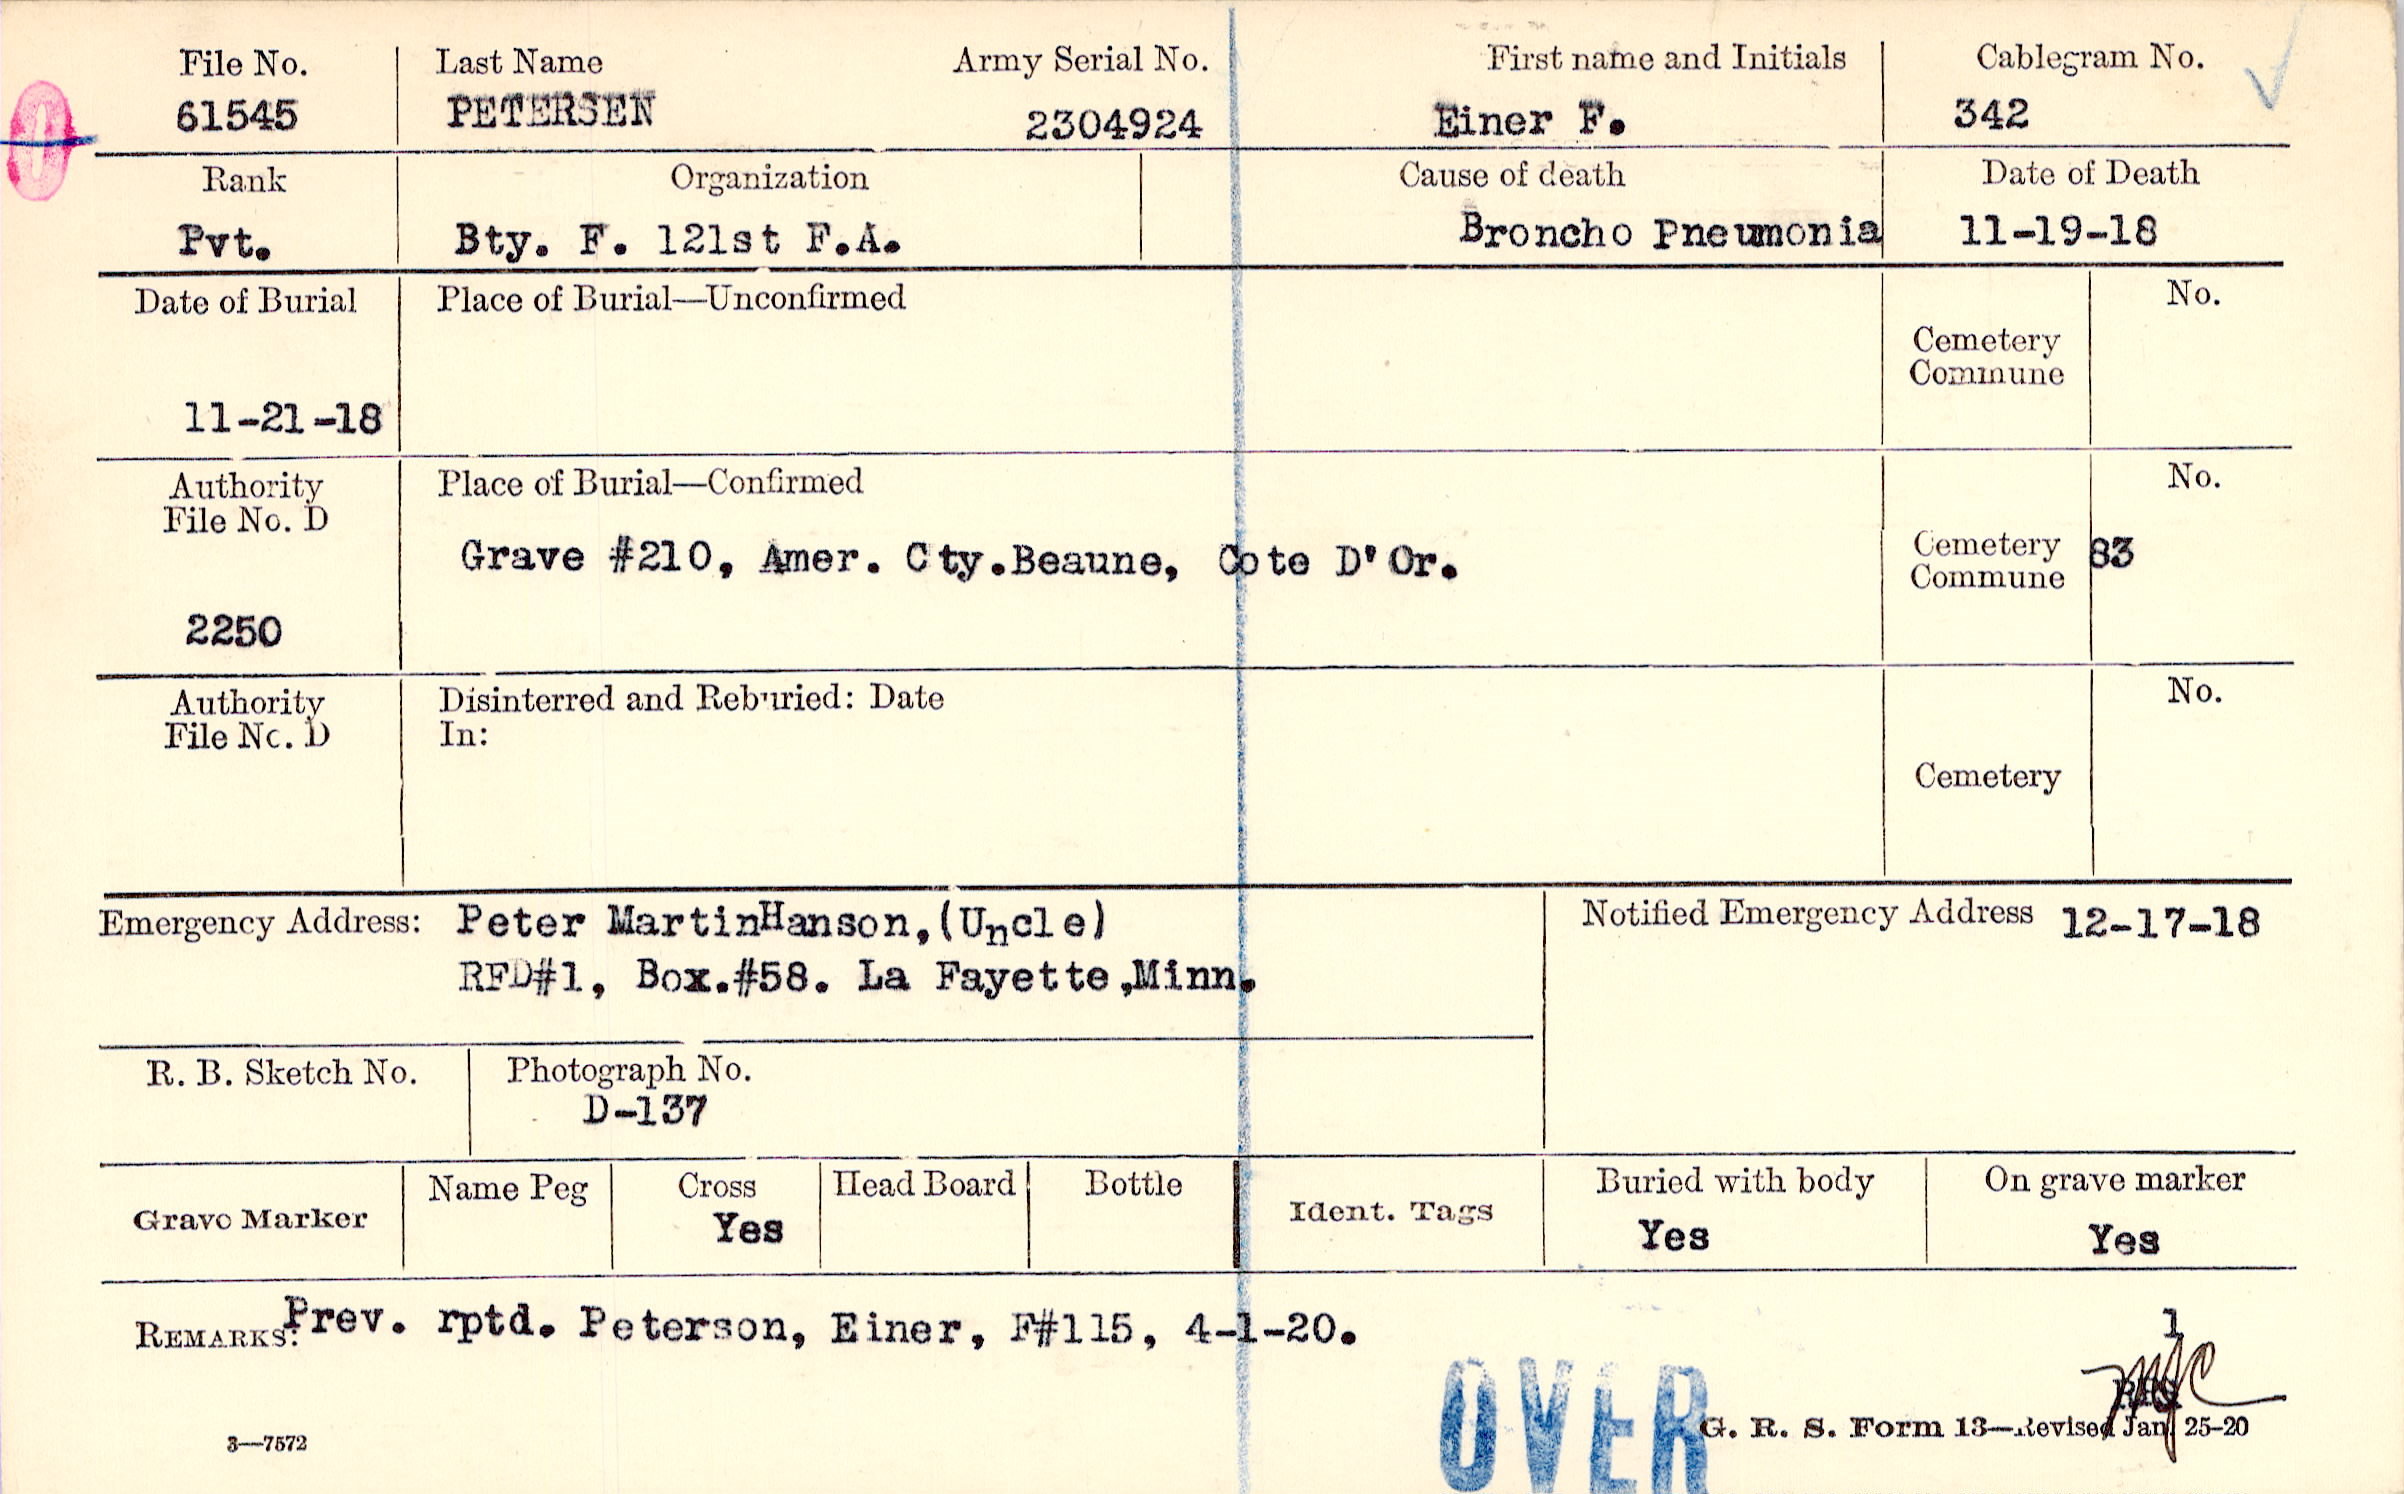 File No. Last Name Army Serial No. First name and Initials Cablegram No.
61545 PETERSEN 2304924 Einer F. 342
Rank Organization Cause of death Date of Death
Pvt. Bty. F. 121st F.A. Broncho Pneumonia 11-19-18
Date of Burial Place of Burial—Unconfirmed No.
Cemetery
Commune
11-21-18
Authority Place of Burial—Confirmed No.
File No. D
Grave #210, Amer. Cty.Beaune, Cote D'Or. Cemetery 83
Commune
2250
Authority Disinterred and Reburied: Date No.
File No. D In:
Cemetery
Emergency Address: Peter MartinHanson,(Uncle) Notified Emergency Address 12-17-18
RFD#1, Box.#58. La Fayette,Minn.
R. B. Sketch No. Photograph No.
D-137
Grave Marker Name Peg Cross Head Board Bottle Ident. Tags Buried with body On grave marker
Yes Yes Yes
REMARKS: Prev. rptd. Peterson, Einer, F#115, 4-1-20. 1
OVER
3—7572 G. R. S. Form 13—Revised Jan. 25-20